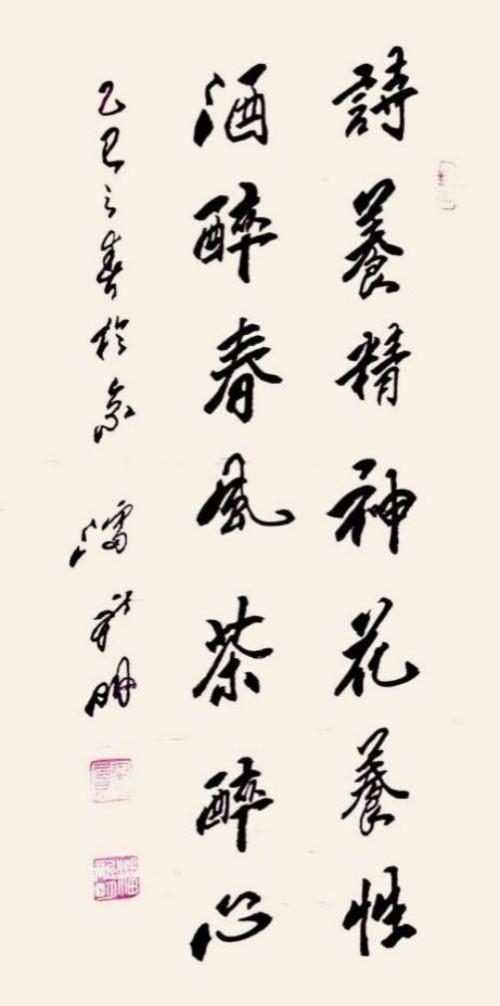 詩養精神花養性
酒醉春風茶醉心
乙巳之春於京 明